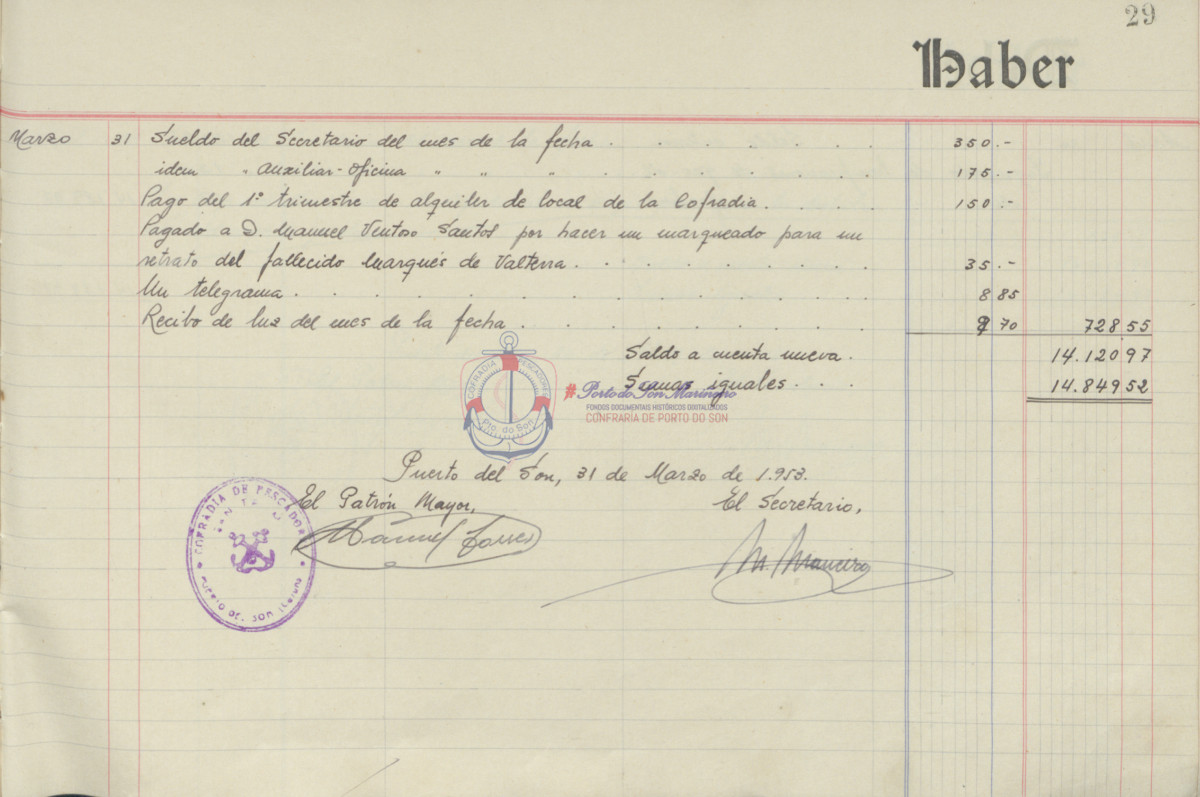 29
Haber
Marzo 31 Sueldo del Secretario del mes de la fecha . . . . . . . 350.-
idem " Auxiliar-Oficina " " " . . . . . . 175.-
Pago del 1º trimestre de alquiler de local de la Cofradia. . . . 150.-
Pagado a D. Manuel Ventoso Santos por hacer un marqueado para un
retrato del fallecido Marqués de Valterra. . . . . . . . . 35.-
Un telegrama. . . . . . . . . . . . . 8 85
Recibo de luz del mes de la fecha . . . . . . . . . 9 70 728 55
Saldo a cuenta nueva. 14.120 97
Sumas iguales. . . 14.849 52
COFRADIA PESCADORES
Pto. do Son
#Porto do Son Mariñeiro
FONDOS DOCUMENTAIS HISTÓRICOS DIXITALIZADOS
CONFRARÍA DE PORTO DO SON
Puerto del Son, 31 de Marzo de 1.953.
El Patrón Mayor, El Secretario,
Manuel Torres
M. Maneiro
COFRADIA DE PESCADOR
PUERTO DEL SON